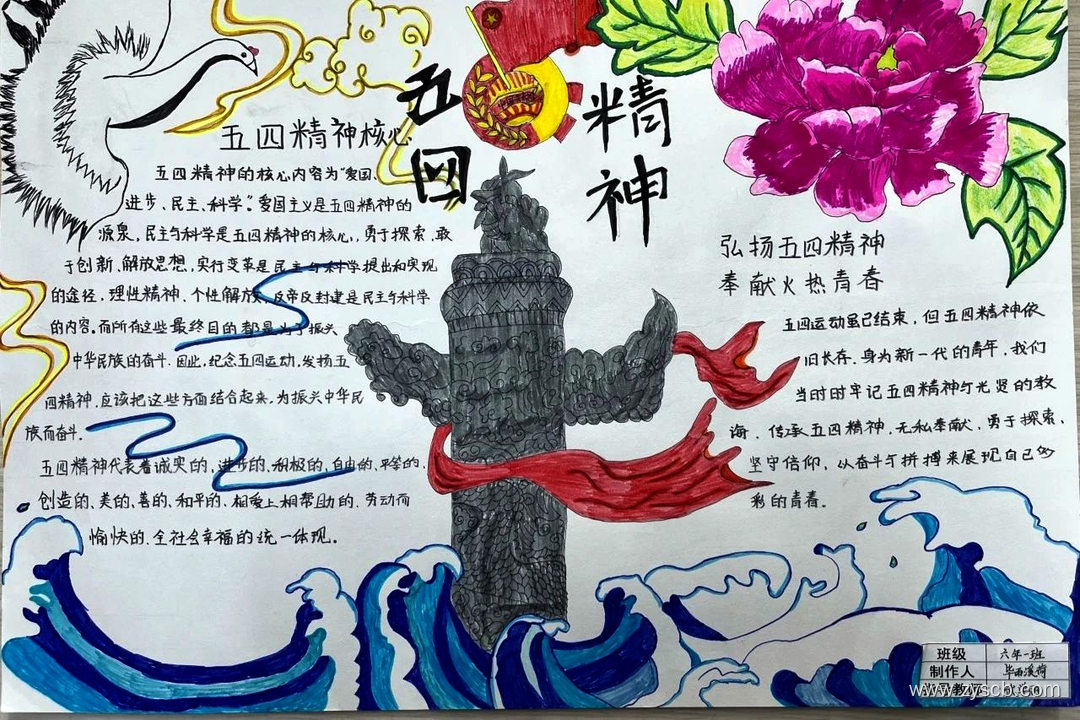 五四
精神
五四精神核心
五四精神的核心内容为"爱国、
进步、民主、科学"。爱国主义是五四精神的
源泉，民主与科学是五四精神的核心，勇于探索、敢
于创新、解放思想，实行变革是民主与科学提出和实现
的途径，理性精神、个性解放、反帝反封建是民主与科学
的内容。而所有这些最终目的都是为了振兴
中华民族的奋斗。因此，纪念五四运动，发扬五
四精神，应该把这些方面结合起来，为振兴中华民
族而奋斗。
五四精神代表着诚实的、进步的、积极的、自由的、平等的、
创造的、美的、善的、和平的、相爱上相帮助的、劳动而
愉快的、全社会幸福的统一体现。
弘扬五四精神
奉献火热青春
五四运动虽已结束，但五四精神依
旧长存。身为新一代的青年，我们
当时时牢记五四精神与光贤的教
诲，传承五四精神，无私奉献，勇于探索，
坚守信仰，从奋斗与拼搏来展现自己的
彩的青春。
班级 六年一班
制作人
教师
www.zyscb.com